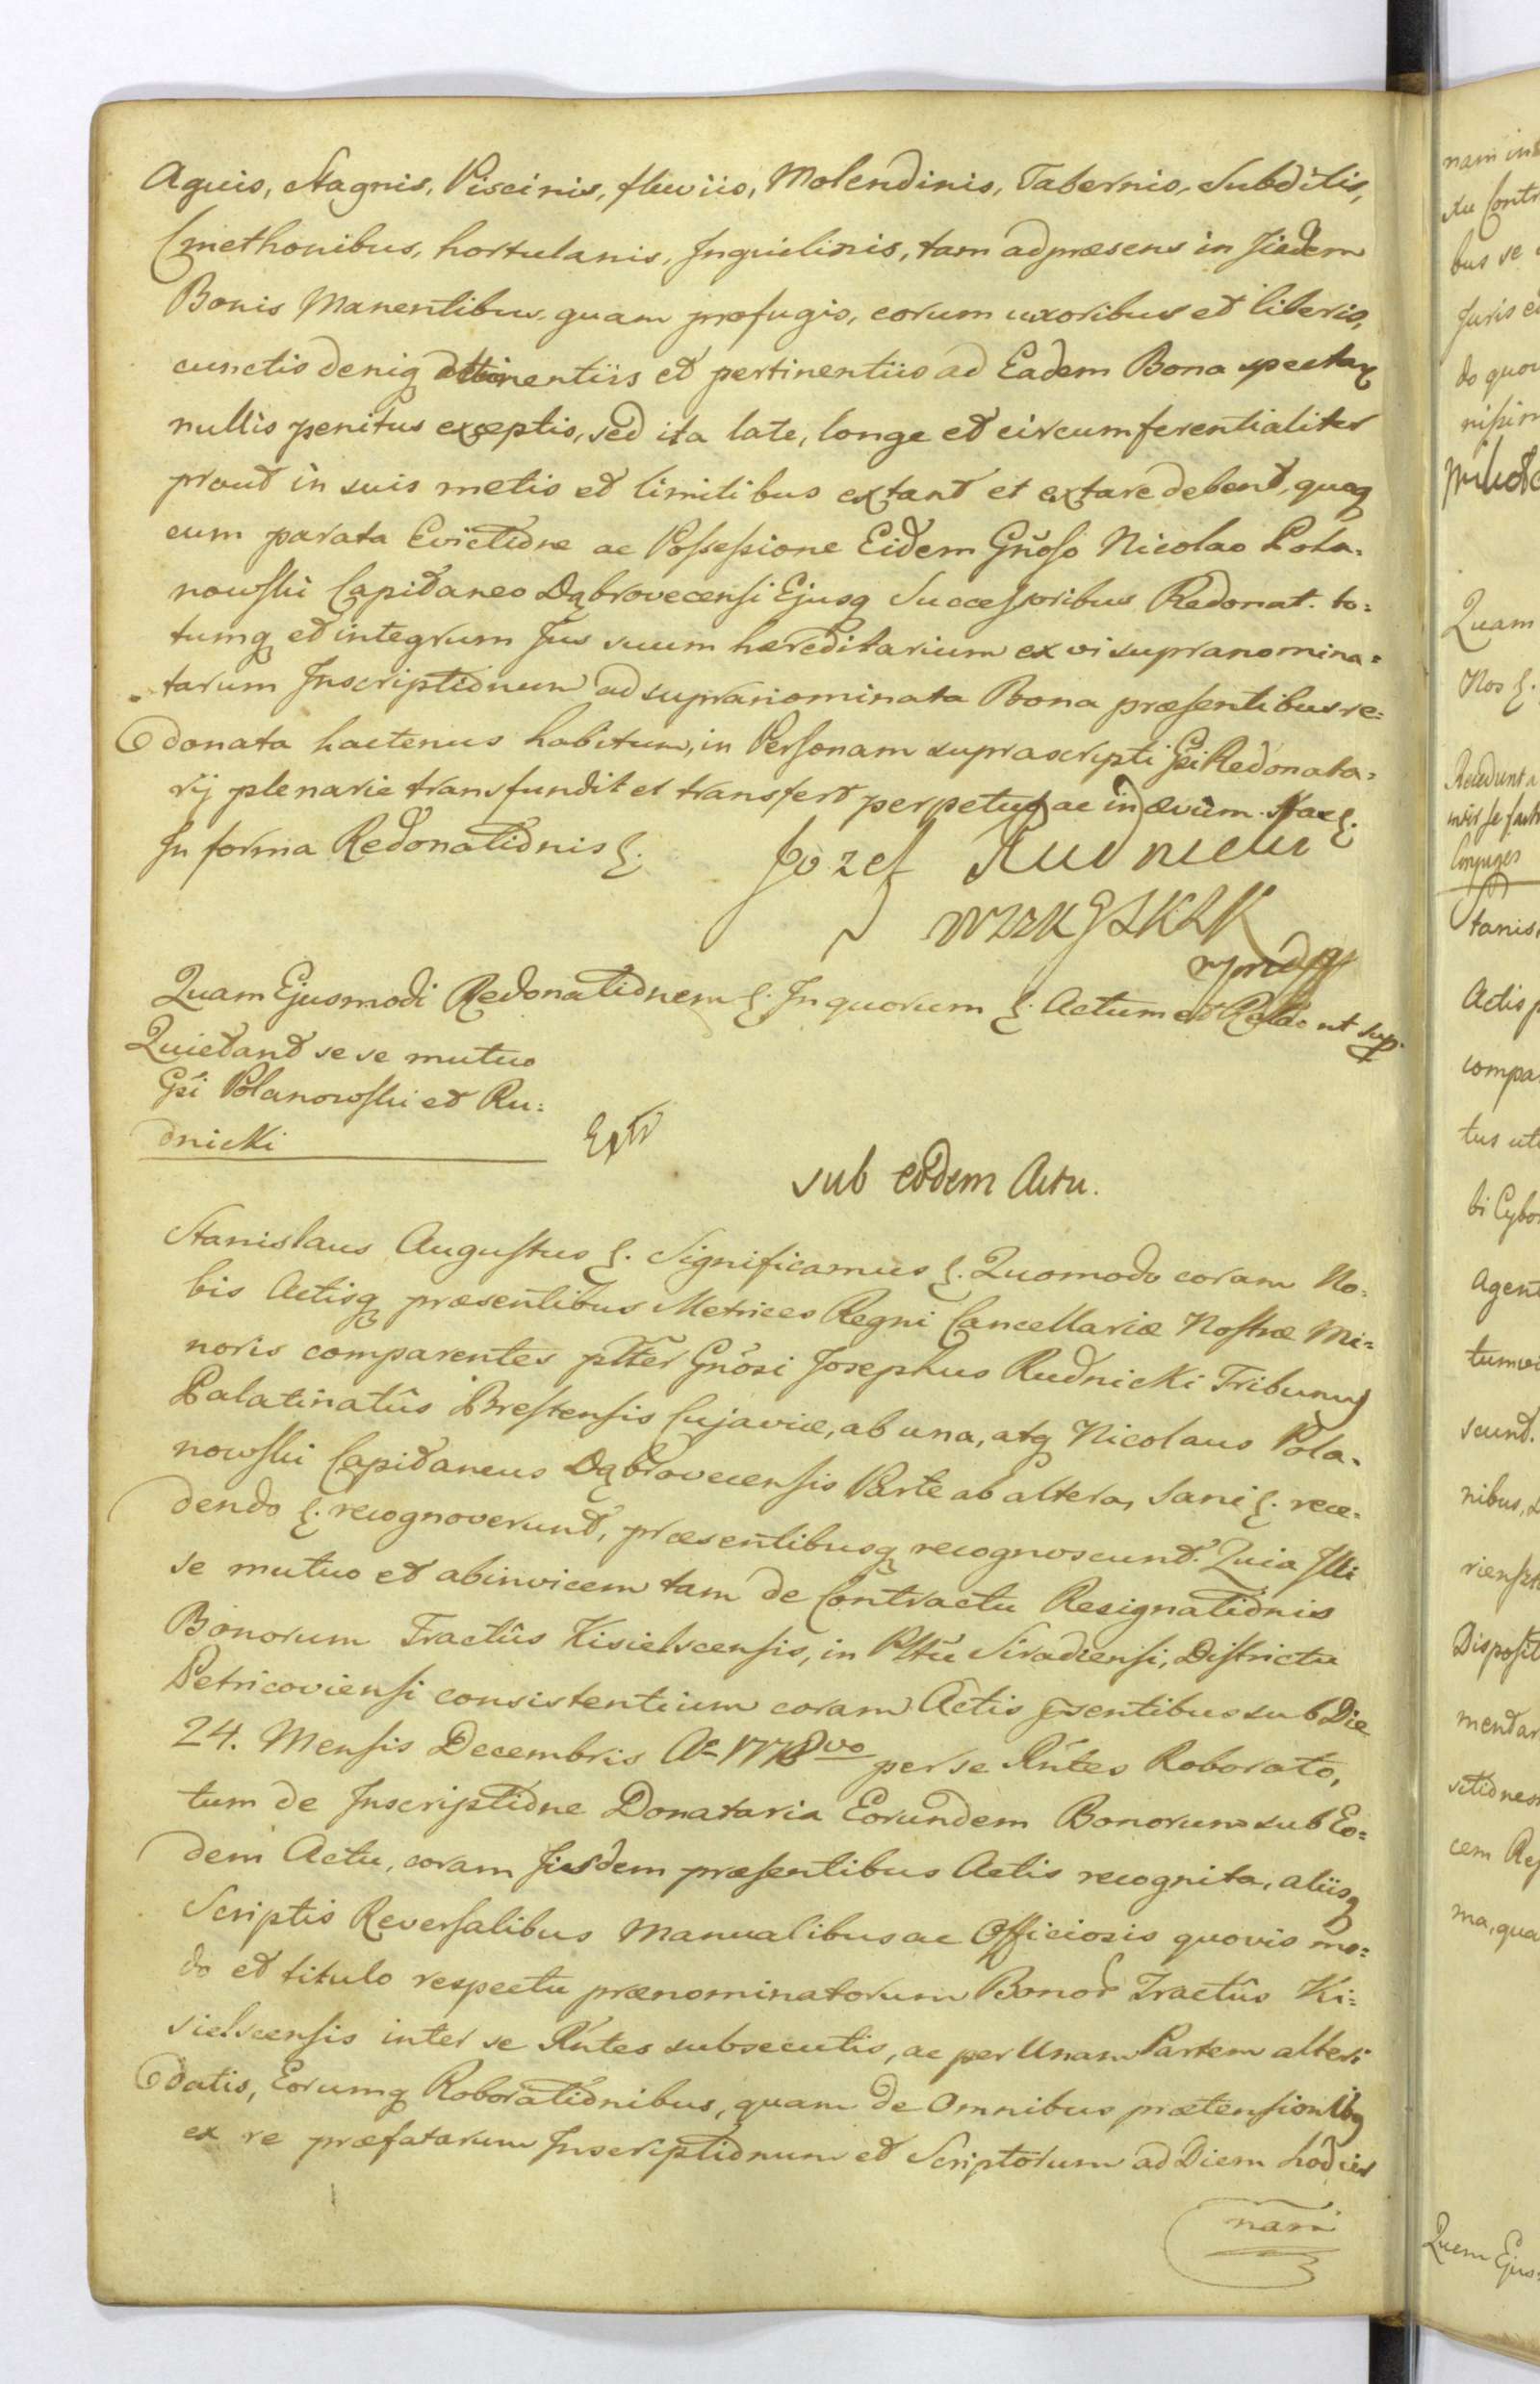 Aquis, Stagnis, Piscinis, fluviis, Molendinis, Tabernis, Subditis,
Cmethonibus, hortulanis, Inquilinis, tam ad præsens in Iisdem
Bonis Manentibus, quam profugis, eorum uxoribus et liberis,
cunctis deniq attinentiis et pertinentiis ad Eadem Bona spectan
nullis penitus exceptis, sed ita late, longe et circumferentialiter
prout in suis metis et limitibus extant et extare debent, quæq
cum parata Evictione ac Possessione Eidem Gnoso Nicolao Pola-
nowski Capitaneo Dąbrovecensi Ejusq Successoribus Redonat. to=
tumq et integrum Jus suum hæreditarium ex vi supranomina=
tarum Inscriptionum ad supranominata Bona præsentibus re=
donata hactenus habitum, in Personam suprascripti Gsi Redonata=
rij plenarie transfundit et transfert perpetuo ac in ævum. Hac
In forma Redonationis
Jozef Rudnicki
Quam Ejusmodi Redonationem In quorum Actum et ut sup.
Quietant sese mutuo
Gsi Polanowski et Ru=
dnicki
Extr
sub eodem Actu.
Stanislaus Augustus Significamus Quomodo coram No-
bis Actisq præsentibus Metrices Regni Cancellariæ Nostræ Mi=
noris comparentes pltter Gnosi Josephus Rudnicki Tribunus
Palatinatûs Brestensis Cujaviæ, ab una, atq Nicolaus Pola-
nowski Capitaneus Dąbrovecensis Parte ab altera, Sani rece-
dendo recognoverunt, præsentibusq recognoscunt. Quia Illi
se mutuo et abinvicem tam de Contractu Resignationis
Bonorum Tractûs Kisielscensis, in Plttu Siradiensi, Districtu
Petricoviensi consistentium coram Actis psentibus sub Die
24. Mensis Decembris Ao 1778vo per se Rntes Roborato,
tum de Inscriptione Donataria Eorundem Bonorum sub Eo=
dem Actu, coram Iisdem præsentibus Actis recognita, aliisq
Scriptis Reversalibus Manualibus ac Officiosis quovis mo=
do et titulo respectu prænominatorum Bonor Tractûs Ki=
sielscensis inter se Rntes subsecutis, ac per Unam Partem alteri
datis, Eorumq Roborationibus, quam de Omnibus prætensionibq
ex re præfatarum Inscriptionum et Scriptorum ad Diem hodier
nam
nam
Contr
bus se
Juris
do quov
nisi
Quam
Nos
Recedunt a
inter se
Conjuges
Actis p
compa
tus uti
bi Cybo
Agent
scunt.
nibus,
Disposit
cem Re
ma, qua
Quem Ejus=